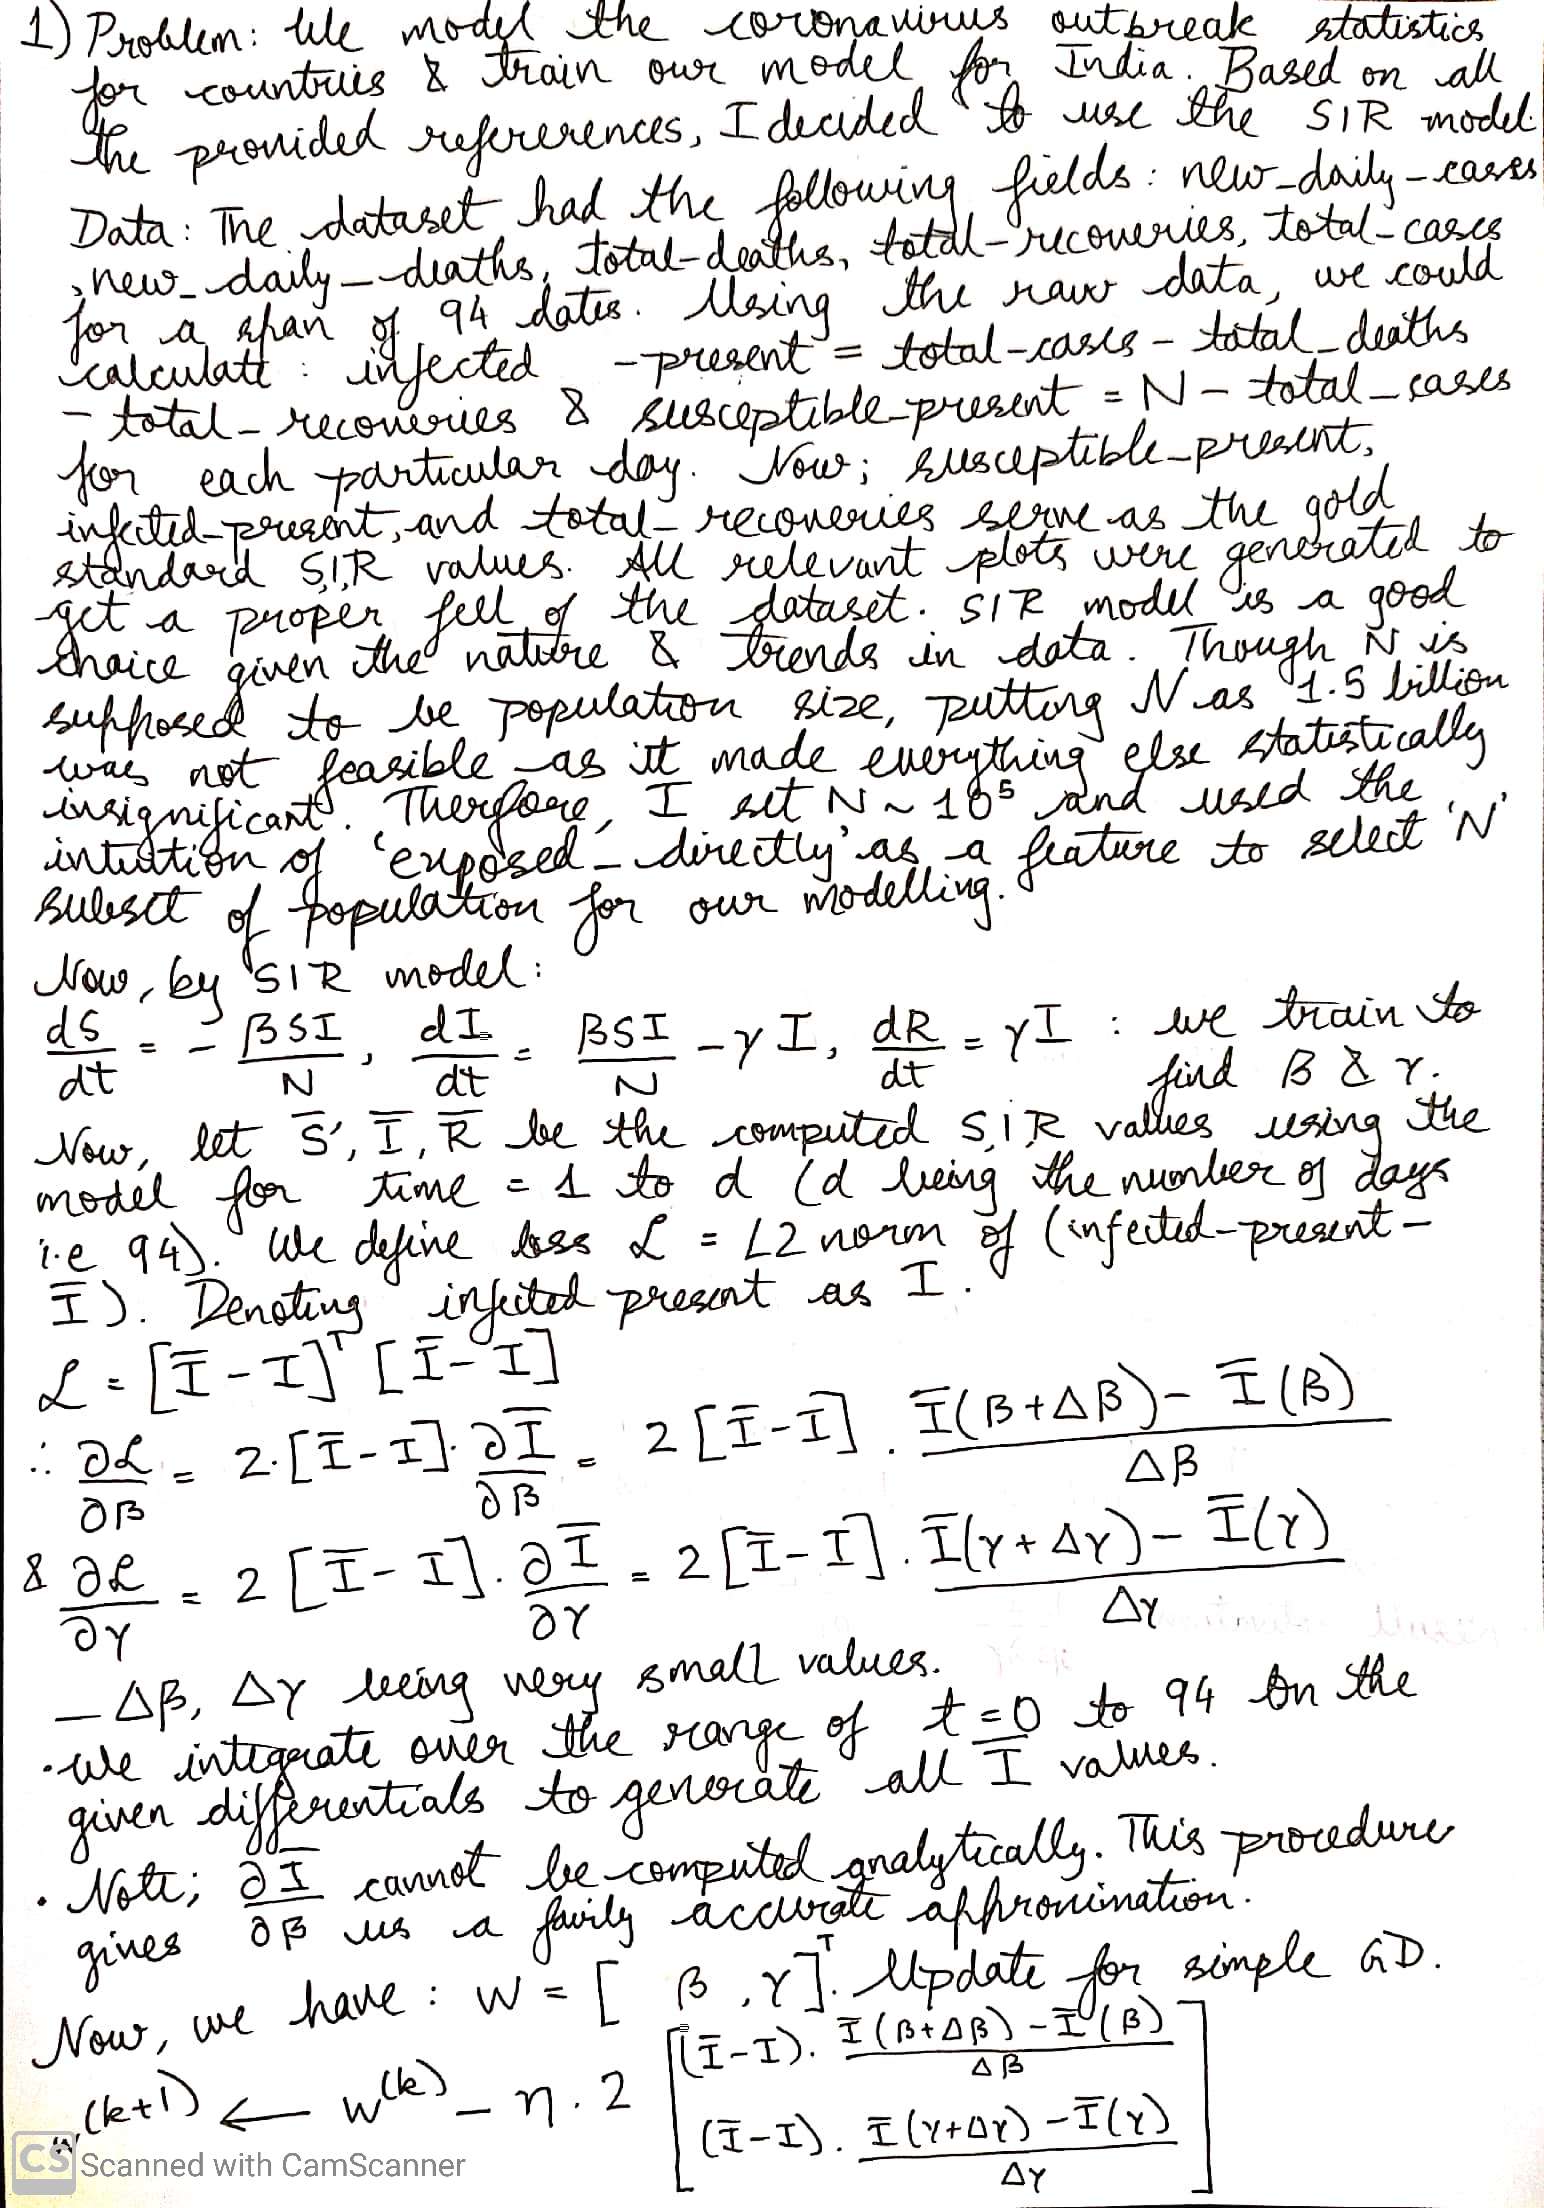 1) Problem: We model the coronavirus outbreak statistics
for countries & train our model for India. Based on all
the provided refererences, I decided to use the SIR model.
Data: The dataset had the following fields: new_daily_cases
, new_daily_deaths, total_deaths, total_recoveries, total_cases
for a span of 94 dates. Using the raw data, we could
calculate: infected _present = total_cases - total_deaths
- total_recoveries & susceptible_present = N - total_cases
for each particular day. Now; susceptible_present,
infected_present, and total_recoveries serve as the gold
standard S,I,R values. All relevant plots were generated to
get a proper feel of the dataset. SIR model is a good
choice given the nature & trends in data. Though N is
supposed to be population size, putting N as 1.5 billion
was not feasible as it made everything else statistically
insignificant. Therefore, I set N ~ 10^5 and used the
intuition of 'exposed_directly' as a feature to select 'N'
subset of population for our modelling.
Now, by SIR model:
dS/dt = -βSI/N, dI/dt = βSI/N - γI, dR/dt = γI : we train to
find β & γ.
Now, let S̄, Ī, R̄ be the computed S,I,R values using the
model for time = 1 to d (d being the number of days
i.e 94). We define loss L = L2 norm of (infected_present -
Ī). Denoting infected present as I.
L = [Ī - I]^T [Ī - I]
∴ ∂L/∂β = 2.[Ī - I].∂Ī/∂β = 2[Ī - I].(Ī(β+Δβ) - Ī(β))/Δβ
& ∂L/∂γ = 2[Ī - I].∂Ī/∂γ = 2[Ī - I].(Ī(γ+Δγ) - Ī(γ))/Δγ
_ Δβ, Δγ being very small values.
• We integrate over the range of t=0 to 94 on the
given differentials to generate all Ī values.
• Note; ∂Ī/∂β cannot be computed analytically. This procedure
gives us a fairly accurate approximation.
Now, we have : w = [ β , γ]^T. Update for simple GD.
w^(k+1) ← w^(k) - η.2 [(Ī-I). (Ī(β+Δβ) - Ī(β))/Δβ
(Ī-I). (Ī(γ+Δγ) - Ī(γ))/Δγ]
CS Scanned with CamScanner